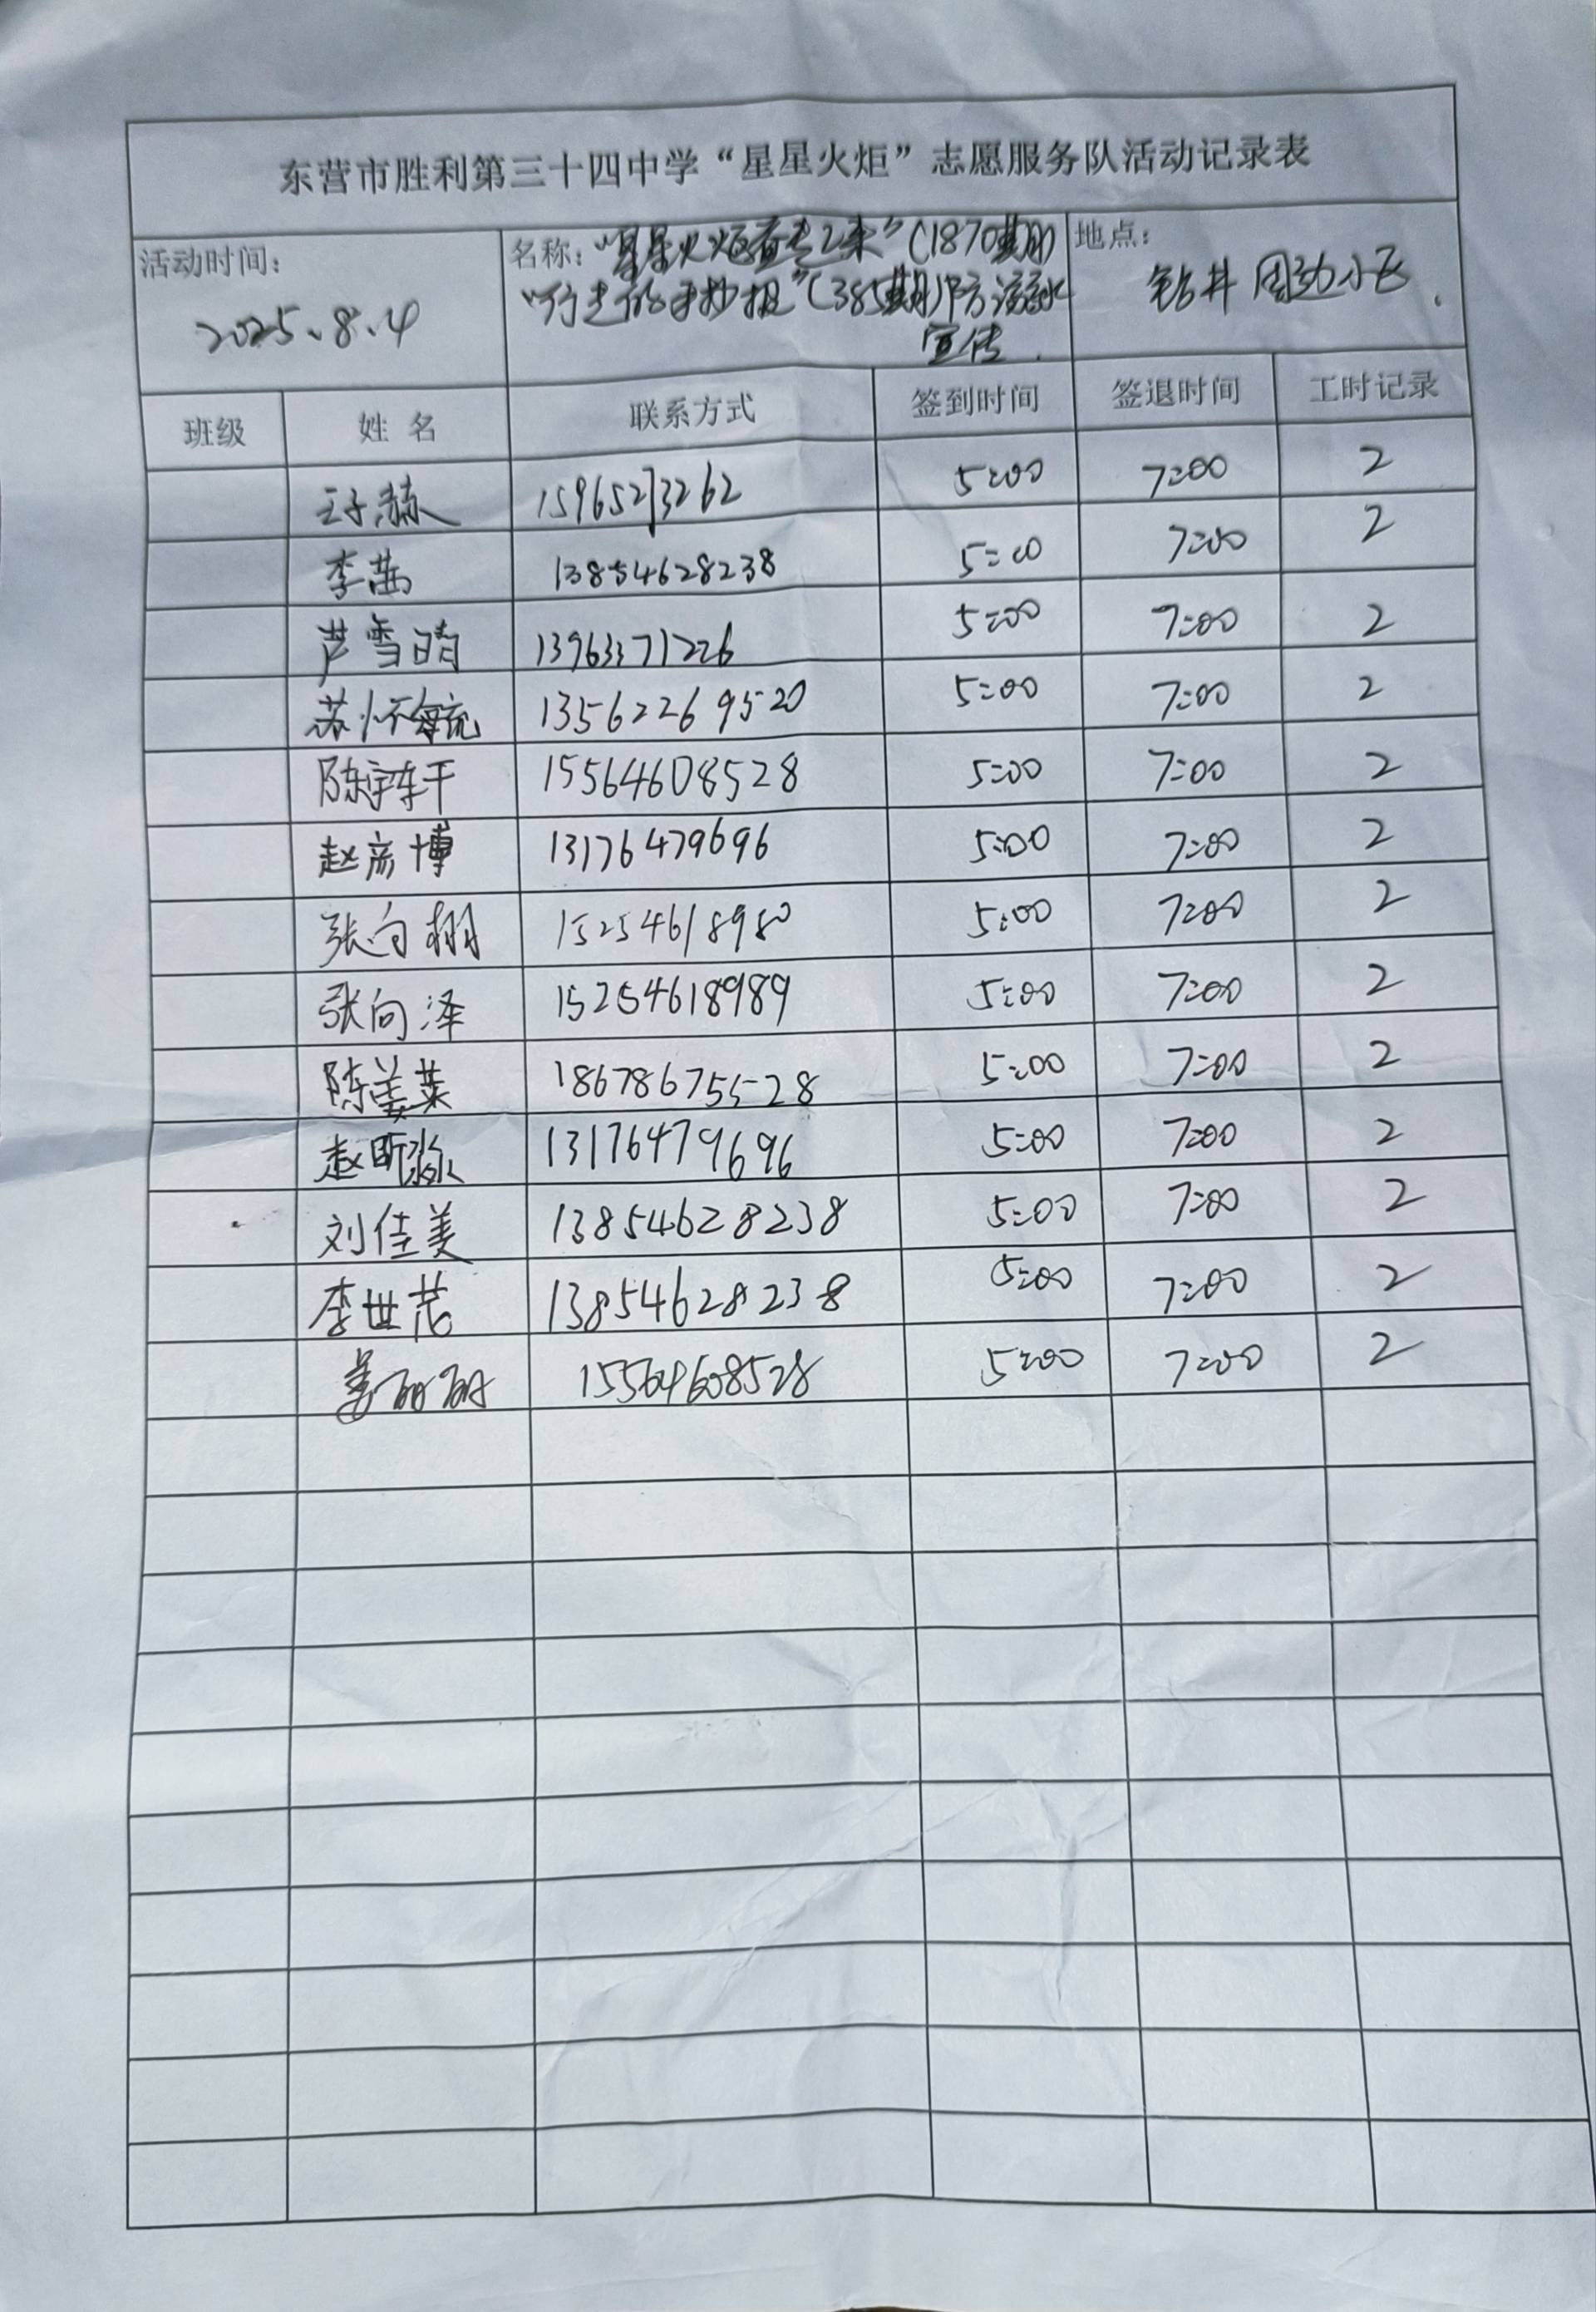 东营市胜利第三十四中学“星星火炬”志愿服务队活动记录表
活动时间: 2025.8.4
名称: “星星火炬 来”(1870期)
“行走的手抄报”(385期)防溺水
宣传
地点: 钻井 周边小区
班级 姓名 联系方式 签到时间 签退时间 工时记录
王子赫 15965273262 5:00 7:00 2
李茜 13854628238 5:00 7:00 2
芦雪晴 13963371226 5:00 7:00 2
苏怀毓 13562269520 5:00 7:00 2
陈宇轩 15564608528 5:00 7:00 2
赵彦博 13176479696 5:00 7:00 2
张向栩 15254618980 5:00 7:00 2
张向泽 15254618989 5:00 7:00 2
陈姜莱 18678675528 5:00 7:00 2
赵昕 13176479696 5:00 7:00 2
刘佳美 13854628238 5:00 7:00 2
李世芯 13854628238 5:00 7:00 2
姜丽丽 15564608528 5:00 7:00 2